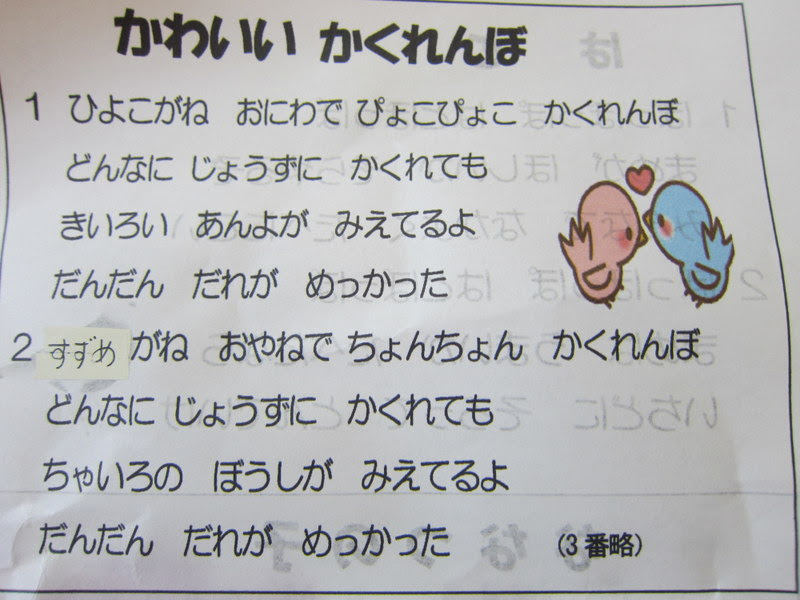 かわいい かくれんぼ
1 ひよこがね おにわで ぴょこぴょこ かくれんぼ
どんなに じょうずに かくれても
きいろい あんよが みえてるよ
だんだん だれが めっかった
2 すずめがね おやねで ちょんちょん かくれんぼ
どんなに じょうずに かくれても
ちゃいろの ぼうしが みえてるよ
だんだん だれが めっかった (3番略)